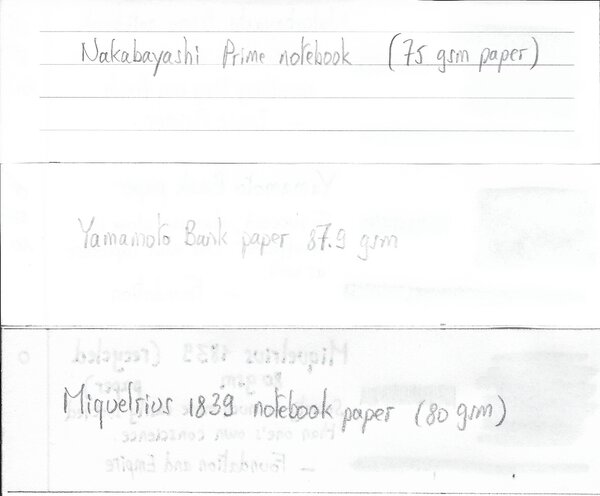 Nakabayashi Prime notebook (75 gsm paper)
Yamamoto Bank paper 87.9 gsm
Miquelrius 1839 notebook paper (80 gsm)